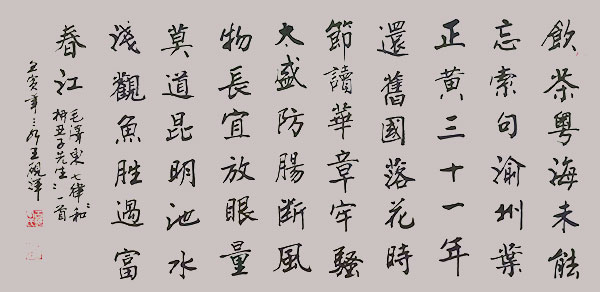 飲茶粵海未能
忘索句渝州葉
正黃三十一年
還舊國落花時
節讀華章牢騷
太盛防腸斷風
物長宜放眼量
莫道昆明池水
淺觀魚胜過富
春江
毛澤東七律"和
柳亞子先生"一首
壬寅年